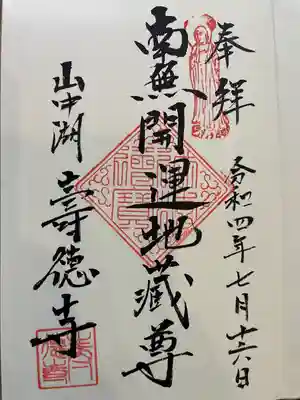 奉拝
令和四年七月十六日
南無開運地蔵尊
山中湖 壽徳寺